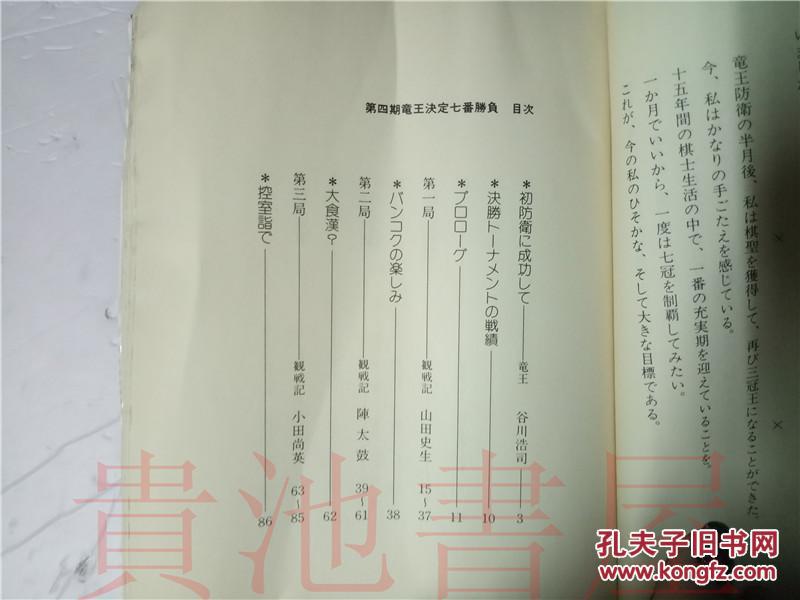 竜王防衛の半月後、私は棋聖を獲得して、再び三冠王になることができた。
今、私はかなりの手ごたえを感じている。
十五年間の棋士生活の中で、一番の充実期を迎えていることを。
一か月でいいから、一度は七冠を制覇してみたい。
これが、今の私のひそかな、そして大きな目標である。
第四期竜王決定七番勝負 目次
＊初防衛に成功して 竜王 谷川浩司 3
＊決勝トーナメントの戦績 10
＊プロローグ 11
第一局 観戦記 山田史生 15〜37
＊バンコクの楽しみ 38
第二局 観戦記 陣太鼓 39〜61
＊大食漢？ 62
第三局 観戦記 小田尚英 63〜85
＊控室詣で 86
貴池書屋
孔夫子旧书网
www.kongfz.com